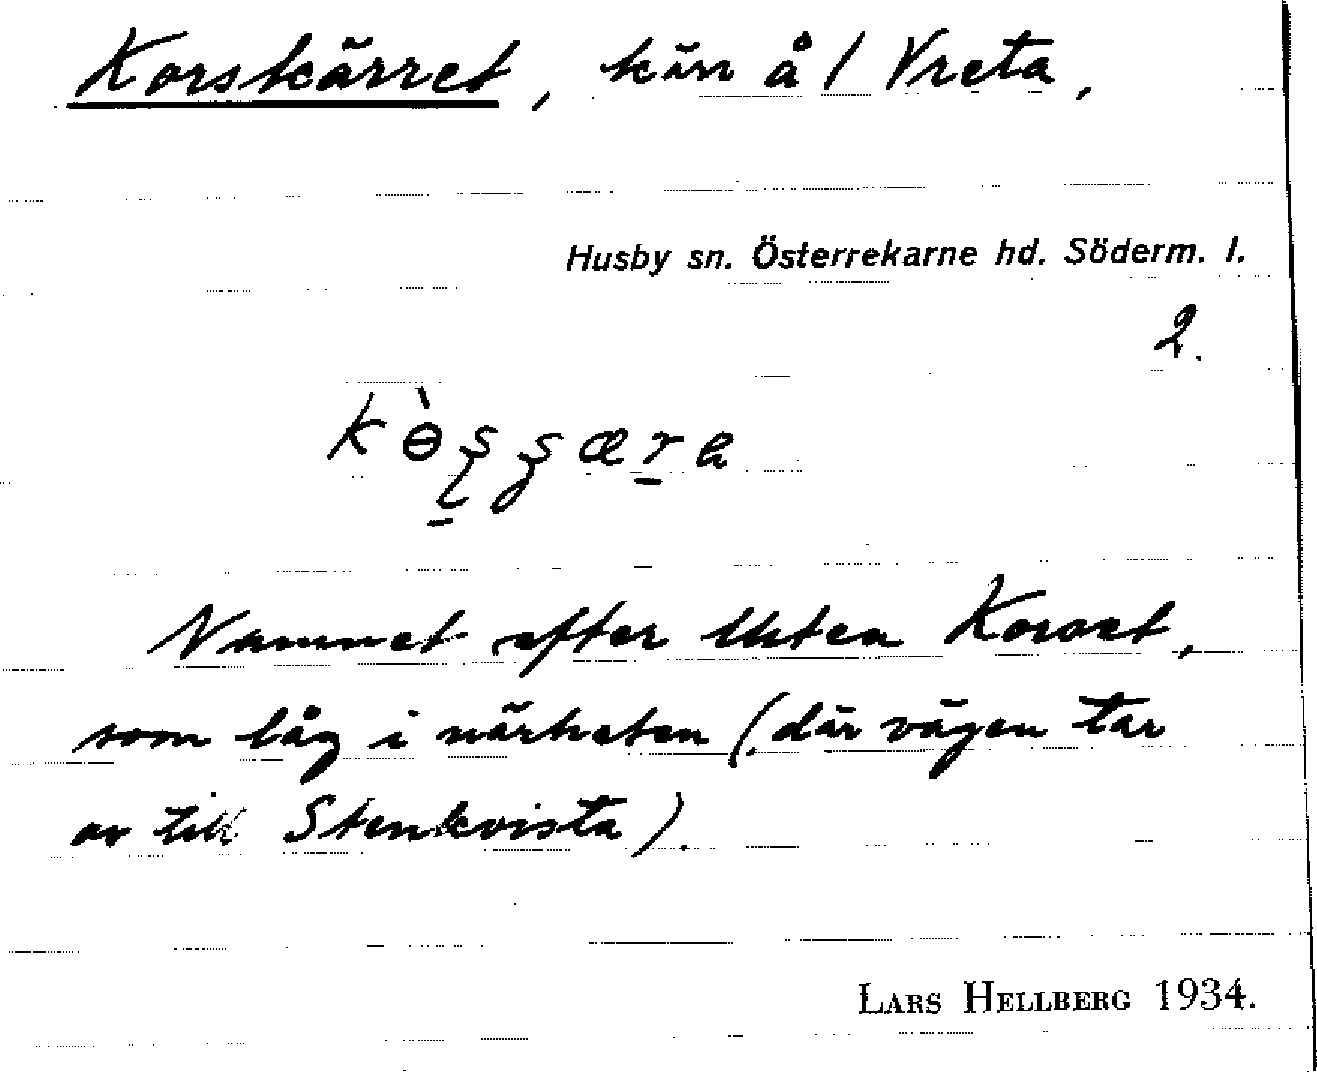 Korskärret, kärr å / Vreta,
Husby sn. Österrekarne hd. Söderm. l.
2.
Namnet efter Ekten Korset,
som låg i närheten (där vägen tar
av till Stenkvista).
LARS HELLBERG 1934.